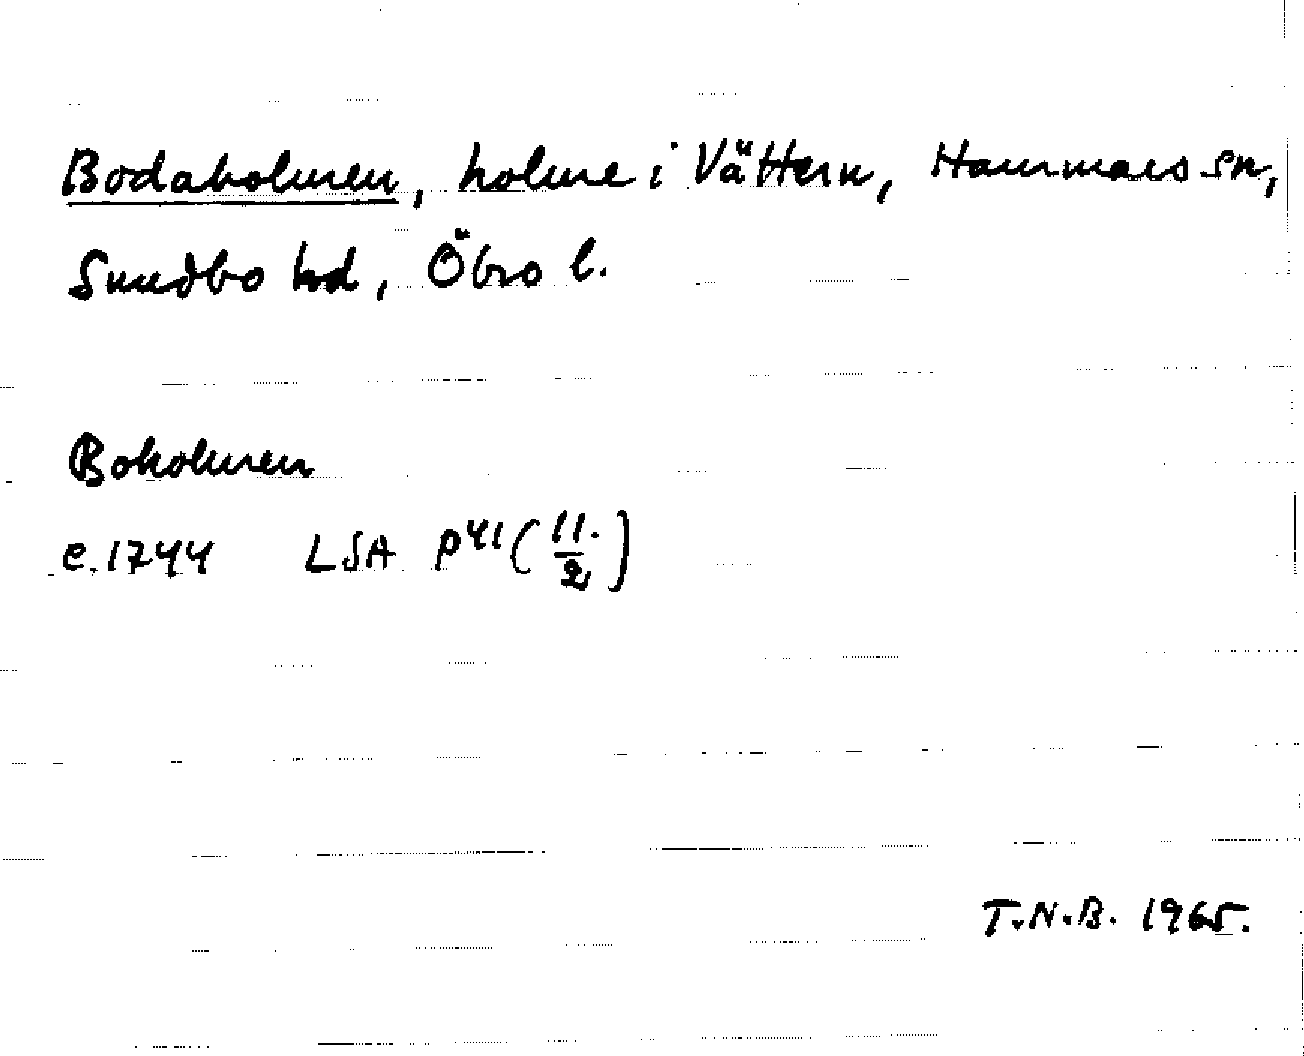 Bodaholmen, holme i Vättern, Hammars sn,
Sundbo hd, Öbro l.
Boholmen
c. 1744 LSA P41 (11./2)
T.N.B. 1965.